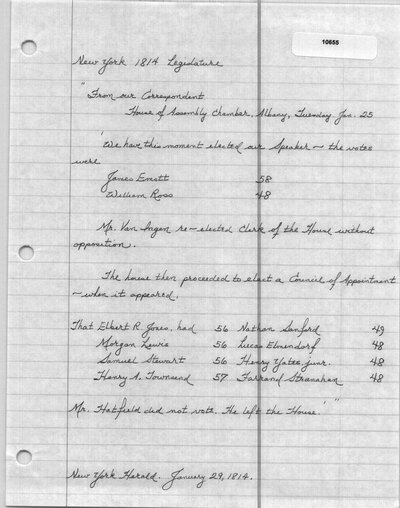 10655
New York 1814 Legislature
"From our Correspondent
House of Assembly Chamber, Albany, Tuesday Jan. 25
'We have this moment elected our Speaker ~ the votes
were
James Emott 58
William Ross 48
Mr. Van Ingen re-elected Clerk of the House without
opposition.
The house then proceeded to elect a Council of Appointment
~ when it appeared,
That Elbert R. Jones, had 56 Nathan Sanford 49
Morgan Lewis 56 Lucas Elmendorf 48
Samuel Stewart 56 Henry Yates, junr. 48
Henry A. Townsend 57 Farrand Stranahan 48
Mr. Hatfield did not vote. He left the House.'"
New York Herald. January 29, 1814.